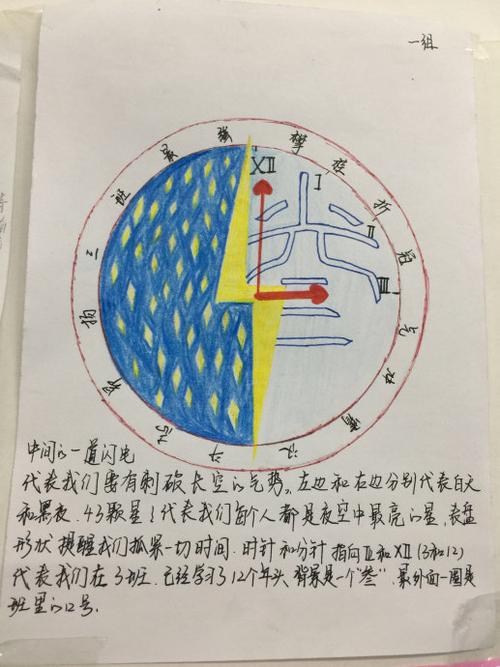 一组
三班最强
攀蟾折冠
XII
I
II
III
中间的一道闪电
代表我们要有刺破长空的气势。左边和右边分别代表白天
和黑夜，43颗星！代表我们每个人都是夜空中最亮的星，表盘
形状提醒我们抓紧一切时间。时针和分针指向III和XII（3和12）
代表我们在3班，已经学习了12个年头，背景是一个“叁”，最外面一圈是
班里的口号。